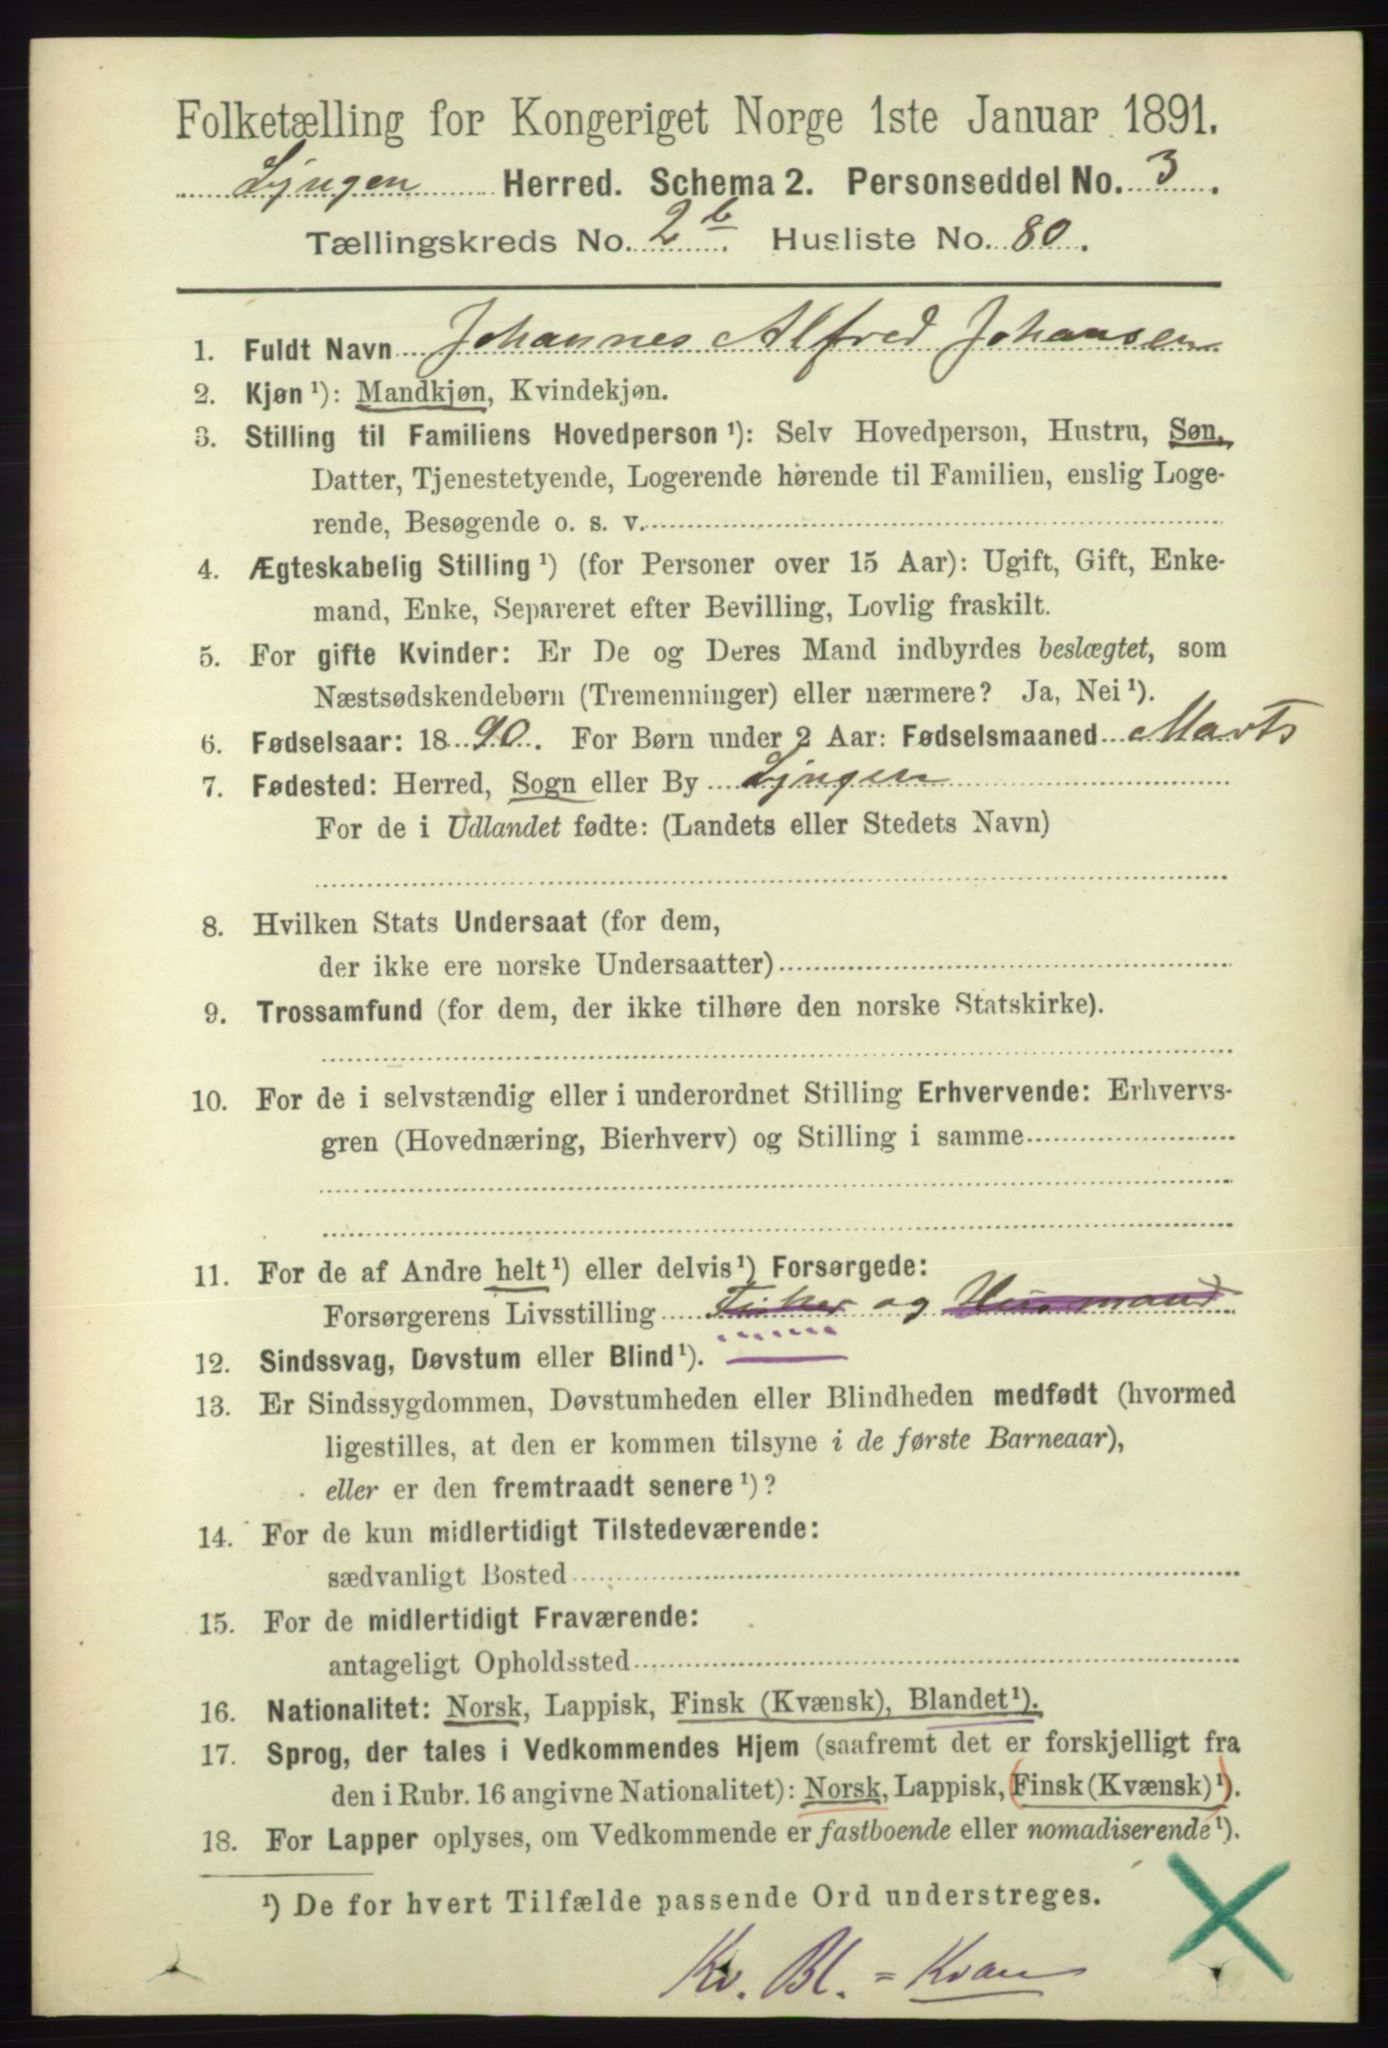 Folketælling for Kongeriget Norge 1ste Januar 1891.
Lyngen Herred. Schema 2. Personseddel No. 3.
Tællingskreds No. 2 b. Husliste No. 80.
1. Fuldt Navn Johannes Alfred Johansen
2. Kjøn ¹): Mandkjøn, Kvindekjøn.
3. Stilling til Familiens Hovedperson ¹): Selv Hovedperson, Hustru, Søn,
Datter, Tjenestetyende, Logerende hørende til Familien, enslig Loge-
rende, Besøgende o. s. v.
4. Ægteskabelig Stilling ¹) (for Personer over 15 Aar): Ugift, Gift, Enke-
mand, Enke, Separeret efter Bevilling, Lovlig fraskilt.
5. For gifte Kvinder: Er De og Deres Mand indbyrdes beslægtet, som
Næstsødskendebørn (Tremenninger) eller nærmere? Ja, Nei ¹).
6. Fødselsaar: 1890. For Børn under 2 Aar: Fødselsmaaned Marts
7. Fødested: Herred, Sogn eller By Lyngen
For de i Udlandet fødte: (Landets eller Stedets Navn)
8. Hvilken Stats Undersaat (for dem,
der ikke ere norske Undersaatter)
9. Trossamfund (for dem, der ikke tilhøre den norske Statskirke).
10. For de i selvstændig eller i underordnet Stilling Erhvervende: Erhvervs-
gren (Hovednæring, Bierhverv) og Stilling i samme
11. For de af Andre helt ¹) eller delvis ¹) Forsørgede:
Forsørgerens Livsstilling Fisker og Husmand
12. Sindssvag, Døvstum eller Blind ¹).
13. Er Sindssygdommen, Døvstumheden eller Blindheden medfødt (hvormed
ligestilles, at den er kommen tilsyne i de første Barneaar),
eller er den fremtraadt senere ¹)?
14. For de kun midlertidigt Tilstedeværende:
sædvanligt Bosted
15. For de midlertidigt Fraværende:
antageligt Opholdssted
16. Nationalitet: Norsk, Lappisk, Finsk (Kvænsk), Blandet ¹).
17. Sprog, der tales i Vedkommendes Hjem (saafremt det er forskjelligt fra
den i Rubr. 16 angivne Nationalitet): Norsk, Lappisk, Finsk (Kvænsk) ¹).
18. For Lapper oplyses, om Vedkommende er fastboende eller nomadiserende ¹).
¹) De for hvert Tilfælde passende Ord understreges.
Kv. Bl. = Kvæn